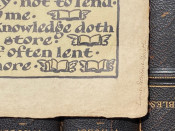 y · not to lend ·
me ·
knowledge doth
store ·
f often lent ·
more ·